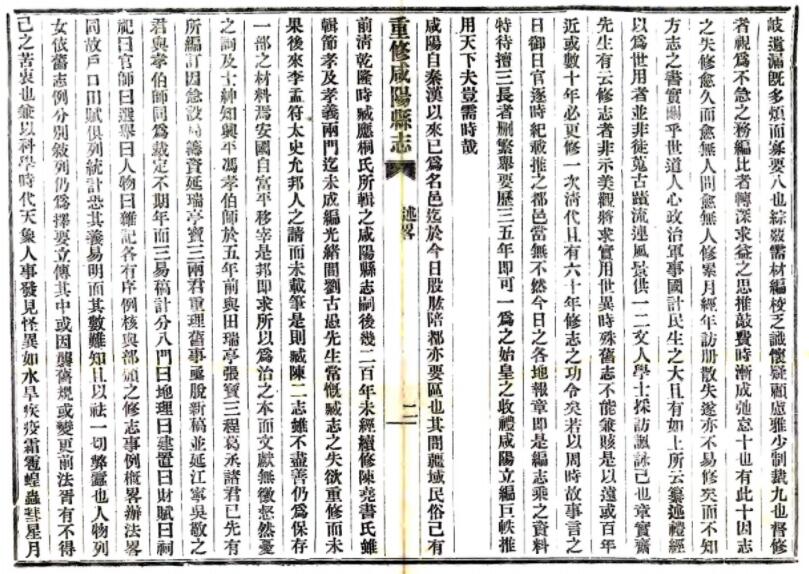 歧遺漏既多煩而寡要八也綜敘需材編校乏識懷疑顧慮雅少制裁九也督修
者視爲不急之務編比者轉深求益之思推敲費時漸成弛怠十也有此十因志
之失修愈久而愈無人問愈無人修累月經年訪册散失遂亦不易修矣而不知
方志之書實關乎世道人心政治軍事國計民生之大且有如上所云纂述禮經
以爲世用者並非徒蒐古蹟流連風景供一二文人學士採訪諷詠已也章實齋
先生有云修志者非示美觀將求實用世異時殊舊志不能兼賅是以遠或百年
近或數十年必更修一次清代且有六十年修志之功令矣若以周時故事言之
日御日官逐時紀載推之都邑當無不然今日之各地報章即是編志乘之資料
特待擅三長者刪繁舉要歷三五年即可一爲之始皇之收禮咸陽立編巨帙推
用天下夫豈需時哉
咸陽自秦漢以來已爲名邑迄於今日股肱陪都亦要區也其間疆域民俗已有
重修咸陽縣志 述畧 二
前清乾隆時臧應桐氏所輯之咸陽縣志嗣後幾二百年未經續修陳堯書氏雖
輯節孝及孝義兩門迄未成編光緒間劉古愚先生當慨臧志之失欲重修而未
果後來李孟符太史允邦人之請而未載筆是則臧陳二志雖不盡善仍爲保存
一部之材料焉安國自富平移宰是邦即求所以爲治之本而文獻無徵怒然憂
之詢及士紳知興平馮孝伯師於五年前與田瑞亭張寶三程葛丞諸君已先有
所編訂因急設局籌資延瑞亭寶三兩君重理舊事亟脫新稿並延江寧吳敬之
君與孝伯師同爲裁定不期年而三易稿計分八門曰地理曰建置曰財賦曰祠
祀曰官師曰選舉曰人物曰雜記各有序例核與部頒之修志事例概畧辦法畧
同故戶口田賦俱列統計恐其義易明而其數難知且以祛一切弊竇也人物列
女依舊志例分別敘列仍爲擇要立傳其中或因襲舊規或變更前法胥有不得
己之苦衷也兼以科學時代天象人事發見怪異如水旱疾疫霜雹蝗蟲彗星月